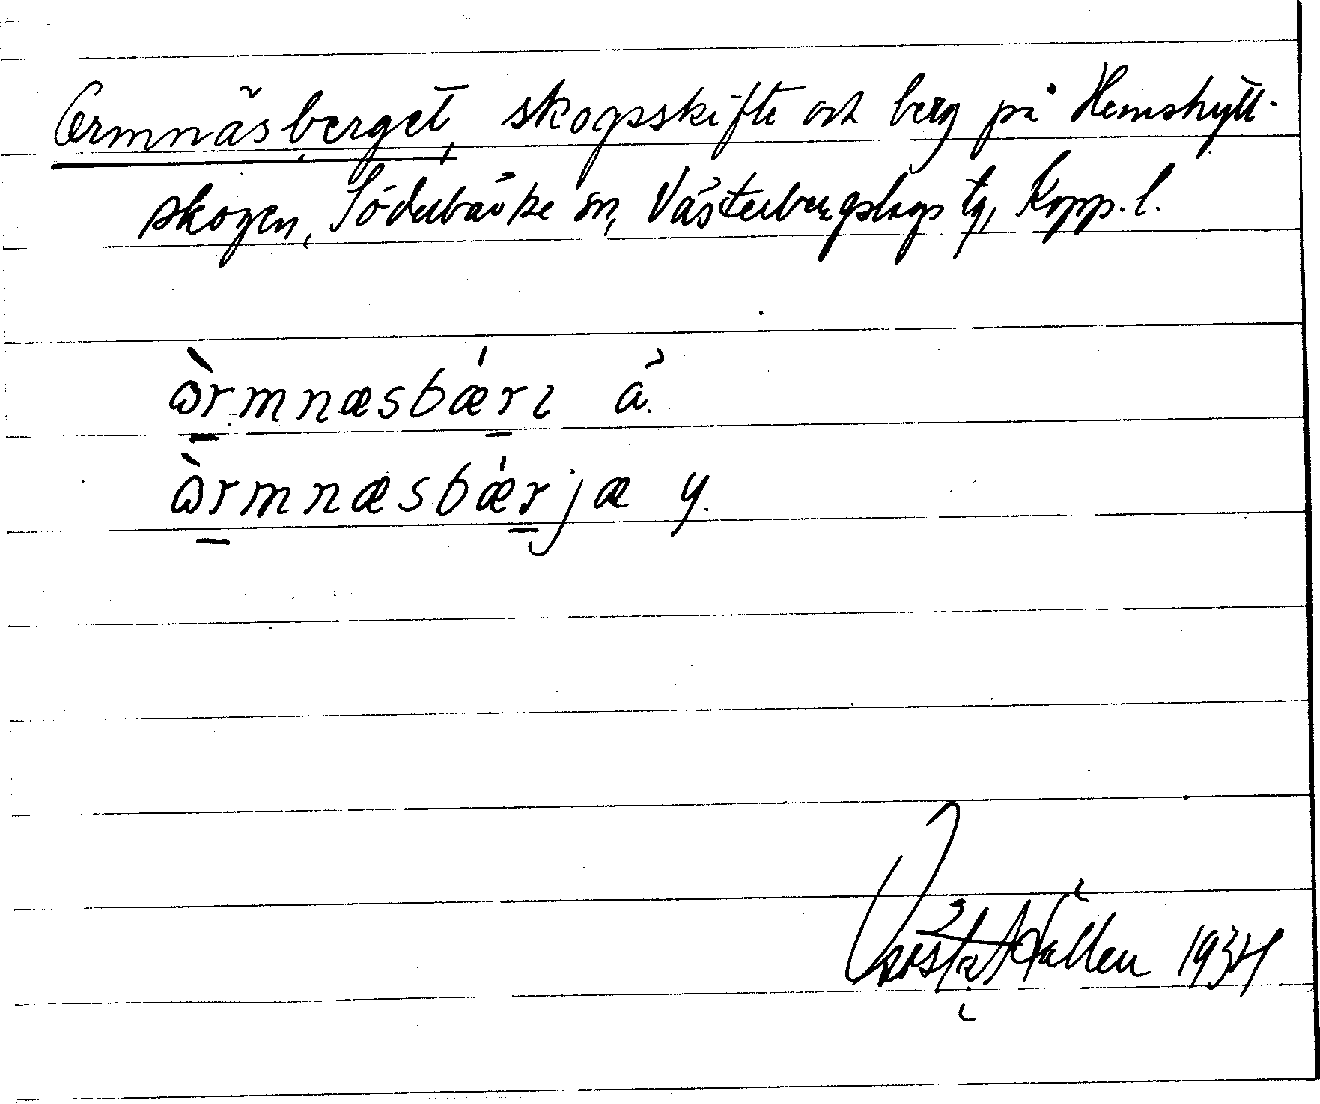 Ormnäsberget, skogsskifte och berg på Hemshytt-
skogen, Söderbärke sn, Västerbergslags tg, Kopp. l.
ɷ̀rmnæsbǽrɩ ä.
ɷ̀rmnæsbǽrjæ y.
Gösta Källén 1934